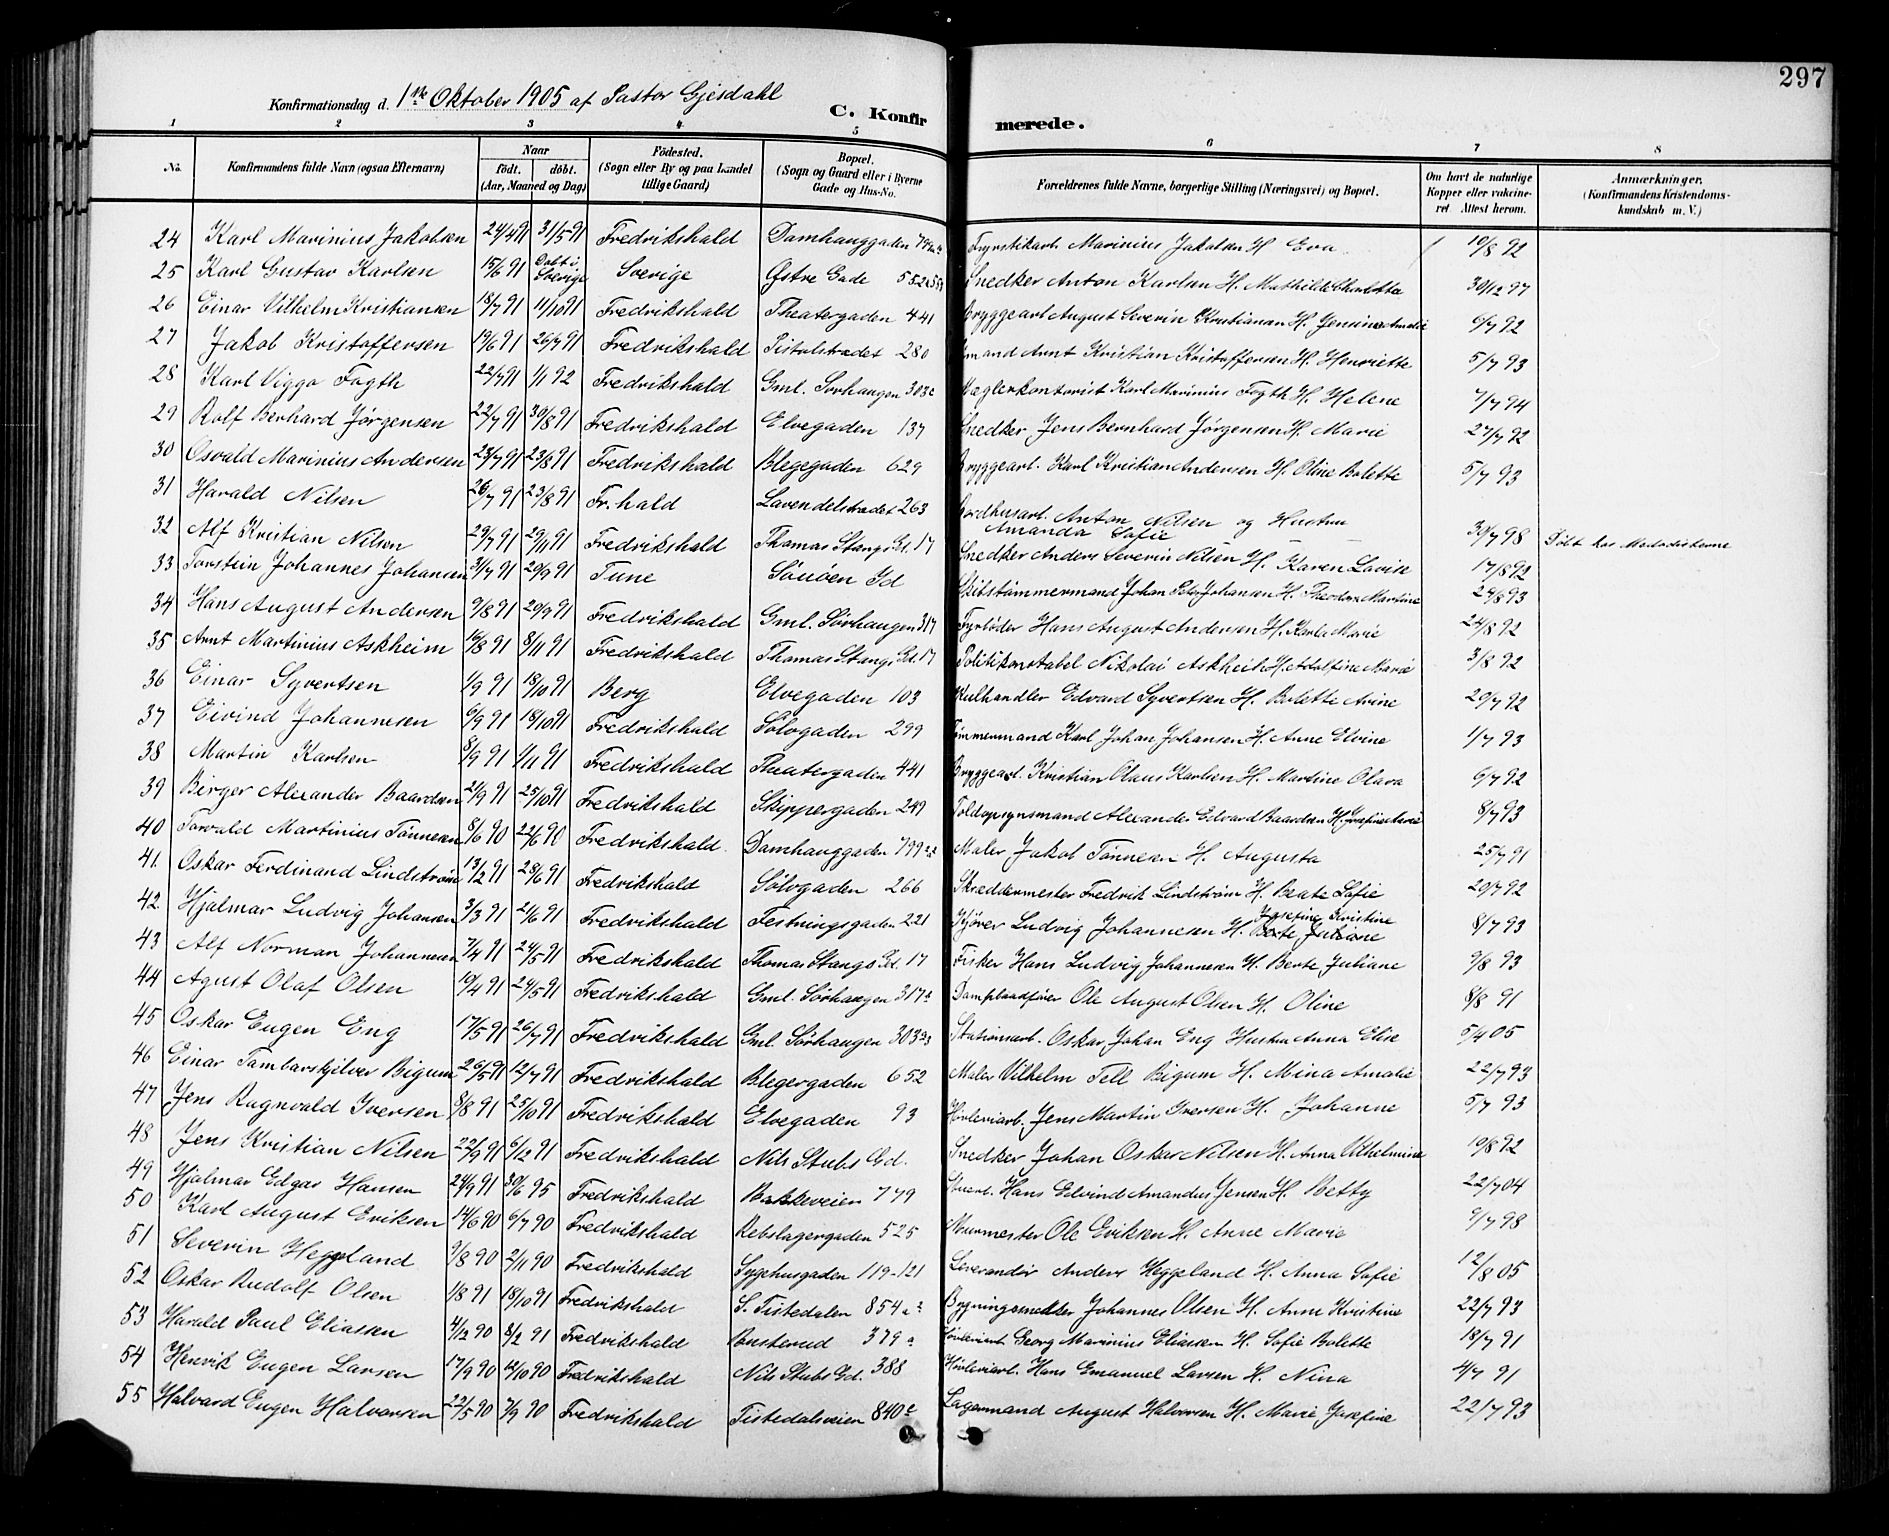 297
Konfirmationsdag d. 1ste Oktober 1905 af Pastor Gjesdahl
C. Konfirmerede.
1 2 3 4 5 6 7 8
No. Konfirmandens fulde Navn (ogsaa Efternavn) Naar født. døbt. (Aar, Maaned og Dag) Fødested. (Sogn eller By og paa Landet tillige Gaard) Bopæl. (Sogn og Gaard eller i Byerne Gade og Hus-No. Forældrenes fulde Navne, borgerlige Stilling (Næringsvei) og Bopæl. Om havt de naturlige Kopper eller vakcineret. Attest herom. Anmærkninger. (Konfirmandens Kristendomskundskab m. V.)
24 Karl Marinius Jakobsen 24/4 91 31/5 91 Fredrikshald Damhauggaden Fyrstikarb. Marinius Jakobsen H. Eva 10/8 92
25 Karl Gustav Karlsen 15/6 91 Døbt i Sverige Sverige Østre Gade Snedker Anton Karlsen H. Mathilde Charlotte 30/12 97
26 Einar Vilhelm Kristiansen 18/7 91 11/10 91 Fredrikshald Theatergaden 441 Bryggearb August Severin Kristiansen H. Jensine Amalie 6/7 92
27 Jakob Kristoffersen 19/6 91 26/7 91 Fredrikshald Pistolstrædet 280 Arnt Kristian Kristoffersen H. Henriette 5/7 93
28 Karl Viggo Fogth 22/7 91 1/1 92 Fredrikshald Gml. Sørhaugen 303c Mæglerkontorist Karl Marinius Fogth H. Helene 7/7 94
29 Rolf Berhard Jørgensen 22/7 91 30/8 91 Fredrikshald Elvegaden 137 Snedker Jens Bernhard Jørgensen H. Marie 27/7 92
30 Osvald Marinius Andersen 23/7 91 23/8 91 Fredrikshald Blegegaden 629 Bryggearb. Karl Kristian Andersen H. Oline Bolette 5/7 93
31 Harald Nilsen 26/7 91 23/8 91 Fr.hald Lavendelstrædet 263 Anton Nilsen og Hustru Amanda Sofie 30/7 98 Døbt hos Methodisterne
32 Alf Kristian Nilsen 29/7 91 29/11 91 Fredrikshald Thomas Stangs Gd. 17 Snedker Anders Severin Nilsen H. Karen Lovise 17/8 92
33 Torstein Johannes Johansen 31/7 91 20/9 91 Tune Sauøen Id Skibstømmermand Johan Peder Johansen H. Theodora Martine 24/8 93
34 Hans August Andersen 9/8 91 20/9 91 Fredrikshald Gml. Sørhaugen 317 Fyrbøder Hans August Andersen H. Karla Marie 24/8 92
35 Arnt Martinius Askheim 16/8 91 8/11 91 Fredrikshald Thomas Stangs Gd. 17 Politikonstabel Nikolai Askheim H. Adolfine Marie 3/8 92
36 Einar Syvertsen 1/9 91 18/10 91 Berg Elvegaden 103 Kulhandler Edvard Syvertsen H. Bolette Arine 20/7 92
37 Eivind Johannesen 6/9 91 18/10 91 Fredrikshald Sølvgaden 299 Tømmermand Karl Johan Johansen H. Anne Elvine 1/7 93
38 Martin Karlsen 8/9 91 1/11 91 Fredrikshald Theatergaden 441 Bryggearb. Kristian Olaus Karlsen H. Martine Olava 6/7 92
39 Birger Alexander Baardsen 21/9 91 25/10 91 Fredrikshald Skippergaden 249 Toldopsynsmand Alexander Edvard Baardsen H. Josefine Marie 8/7 93
40 Torvald Martinius Tønnesen 8/6 90 22/6 90 Fredrikshald Damhauggaden Maler Jakob Tønnesen H. Augusta 25/7 91
41. Oskar Ferdinand Lindstrøm 13/2 91 28/6 91 Fredrikshald Sølvgaden 266 Skræddermester Fredrik Lindstrøm H. Beate Sofie 20/7 92
42. Hjalmar Ludvig Johansen 3/3 91 21/6 91 Fredrikshald Festningsgaden 221 Kjører Ludvig Johannesen H. Josefine Kristine 8/7 93
43 Alf Norman Johannesen 7/4 91 24/5 91 Fredrikshald Thomas Stangs Gd. 17 Fisker Hans Ludvig Johannesen H. Berte Juliane 9/8 93
44 Agust Olaf Olsen 10/4 91 24/5 91 Fredrikshald Gml. Sørhaugen 317a Dampbaadfører Ole August Olsen H. Oline 8/8 91
45 Oskar Eugen Eng 17/5 91 26/7 91 Fredrikshald Gml. Sørhaugen Stationsarb. Oskar Johan Eng Hustru Anna Elise 5/4 05
46 Einar Tambarskjelver Bigum 26/5 91 12/7 91 Fredrikshald Blegergaden 652 Maler Vilhelm Tell Bigum H. Mina Amalie 22/7 93
47 Jens Ragnvald Iversen 8/8 91 25/10 91 Fredrikshald Elvegaden 93 Høvleriarb. Jens Martin Iversen H. Johanne 5/7 93
48 Jens Kristian Nilsen 22/9 91 6/12 91 Fredrikshald Nils Stubs Gd. Snedker Johan Oskar Nilsen H. Anna Vilhelmine 19/8 92
49 Hjalmar Edgar Hansen 24/9 91 30/6 95 Fredrikshald Bakkeveien 779 Hans Edvind Amandus Jensen H. Betty 22/7 04
50 Karl August Eriksen 14/6 90 6/7 90 Fredrikshald Rebslagergaden 525 Murmester Ole Eriksen H. Anne Marie 9/7 98
51 Severin Heggeland 9/8 90 2/11 90 Fredrikshald Sygehusgaden 119-121 Leverandør Anders Heggeland H. Anna Sofie 12/8 05
52 Oskar Rudolf Olsen 1/8 91 18/10 91 Fredrikshald S. Tistedalen 854 Bygningssnedker Johannes Olsen H. Anne Kristine 22/7 93
53 Harald Paul Eliassen 4/12 90 8/2 91 Fredrikshald 379a Høvleriarb Georg Marinius Eliassen H. Sofie Bolette 18/7 91
54 Henrik Eugen Larsen 17/9 90 12/10 90 Fredrikshald Nils Stubs Gd. 388 Høvleriarb. Hans Emanuel Larsen H. Nina 4/7 91
55 Halvard Eugen Halvorsen 22/5 90 7/9 90 Fredrikshald Tistedalsveien 840c Lagermand August Halvorsen H. Marie Josefine 22/7 93